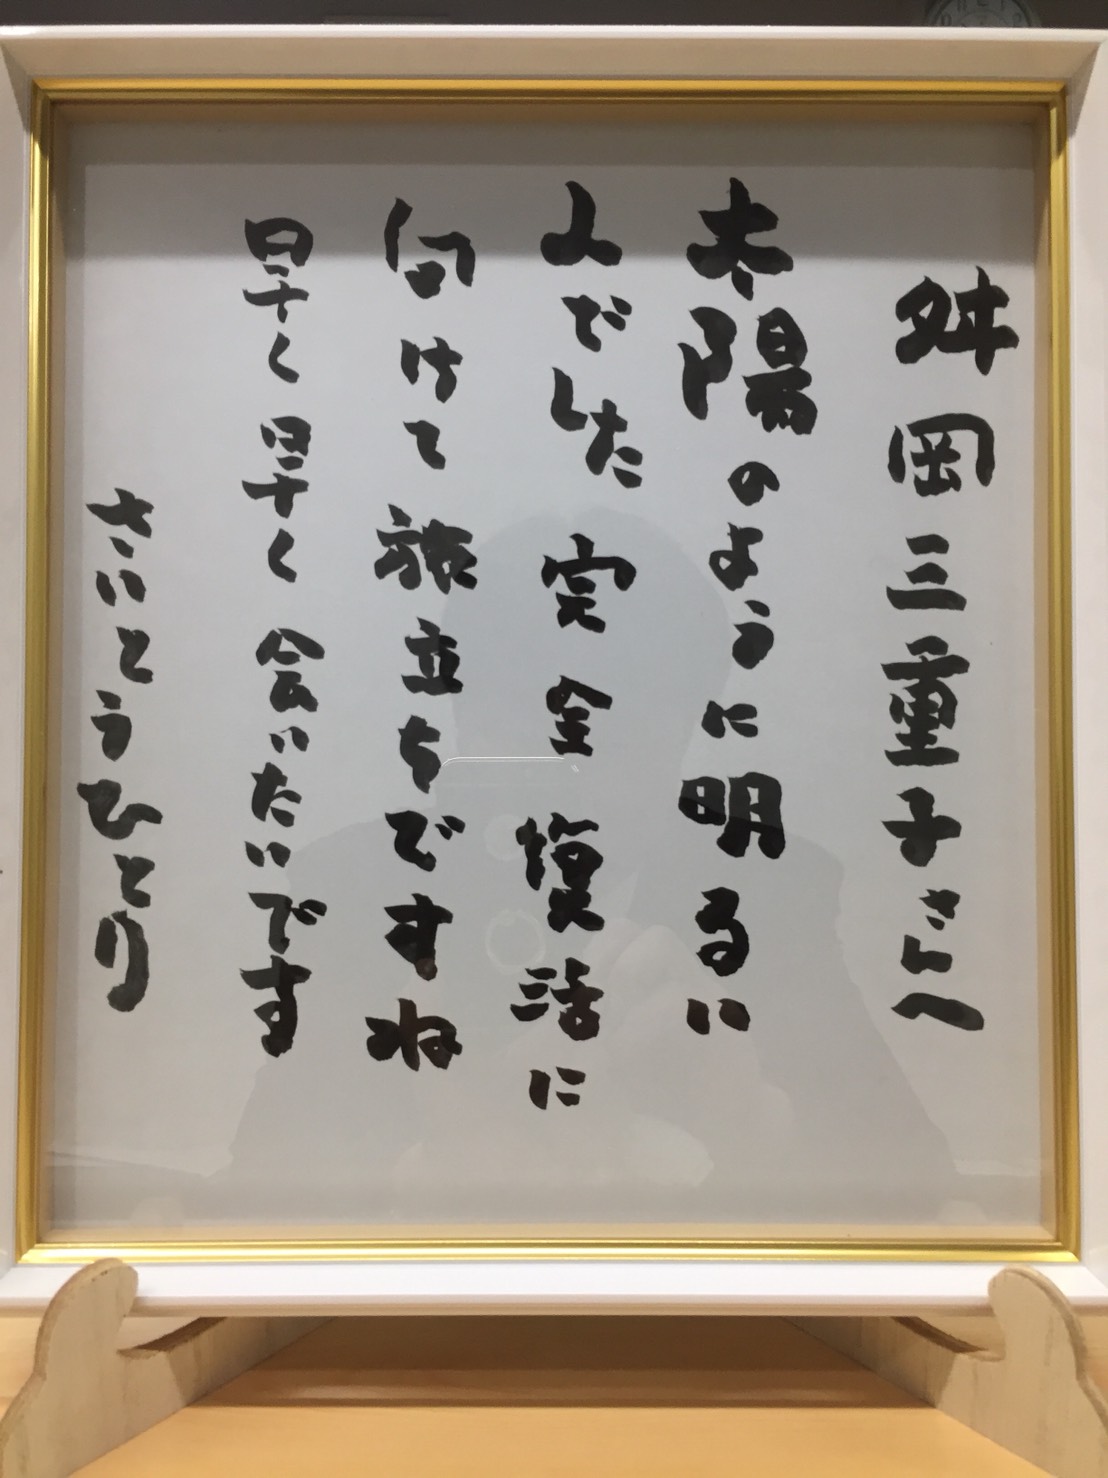 舛岡三重子さんへ
太陽のように明るい
人でした完全復活に
向けて旅立ちですね
早く早く会いたいです
さいとうひとり